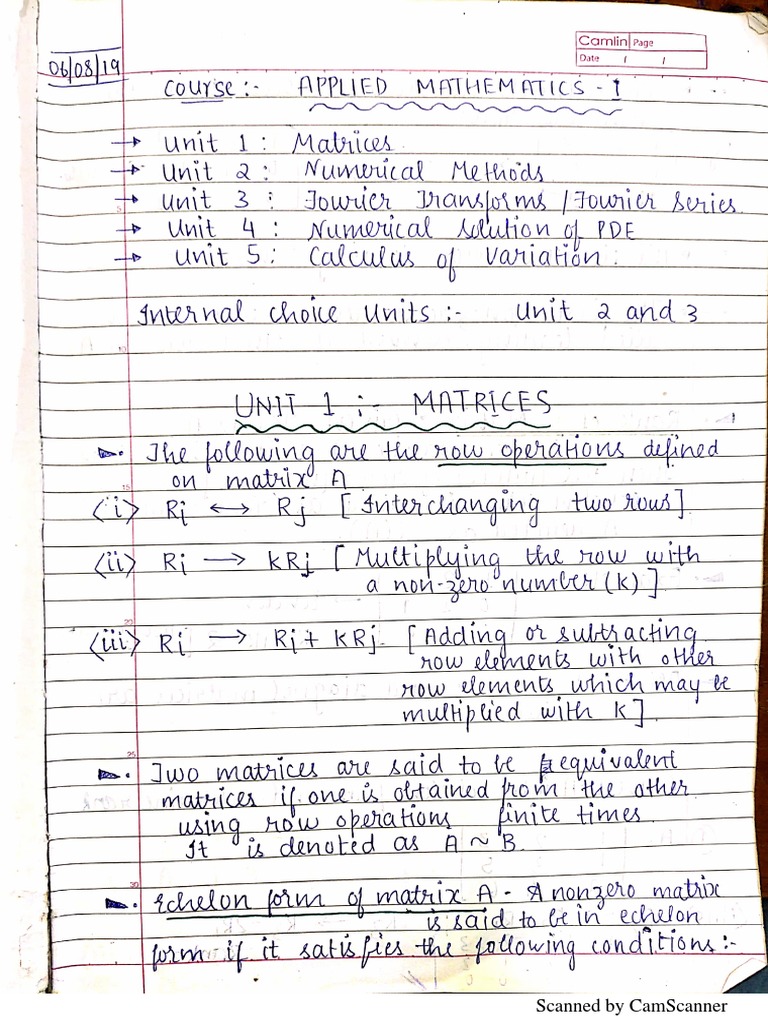 Camlin Page
Date / /
06/08/19
Course:- APPLIED MATHEMATICS - I
→ Unit 1 : Matrices
→ Unit 2 : Numerical Methods
→ Unit 3 : Fourier Transforms / Fourier Series
→ Unit 4 : Numerical Solution of PDE
→ Unit 5 : Calculus of Variation.
Internal choice Units :- Unit 2 and 3
UNIT 1 :- MATRICES
The following are the row operations defined
on matrix A
<i> Ri ↔ Rj [Interchanging two rows]
<ii> Ri → kRj [Multiplying the row with
a non-zero number (k)]
<iii> Ri → Ri + kRj [Adding or subtracting
row elements with other
row elements which may be
multiplied with k]
Two matrices are said to be equivalent
matrices if one is obtained from the other
using row operations finite times.
It is denoted as A ~ B.
Echelon form of matrix A - A nonzero matrix
is said to be in echelon
form if it satisfies the following conditions:-
Scanned by CamScanner